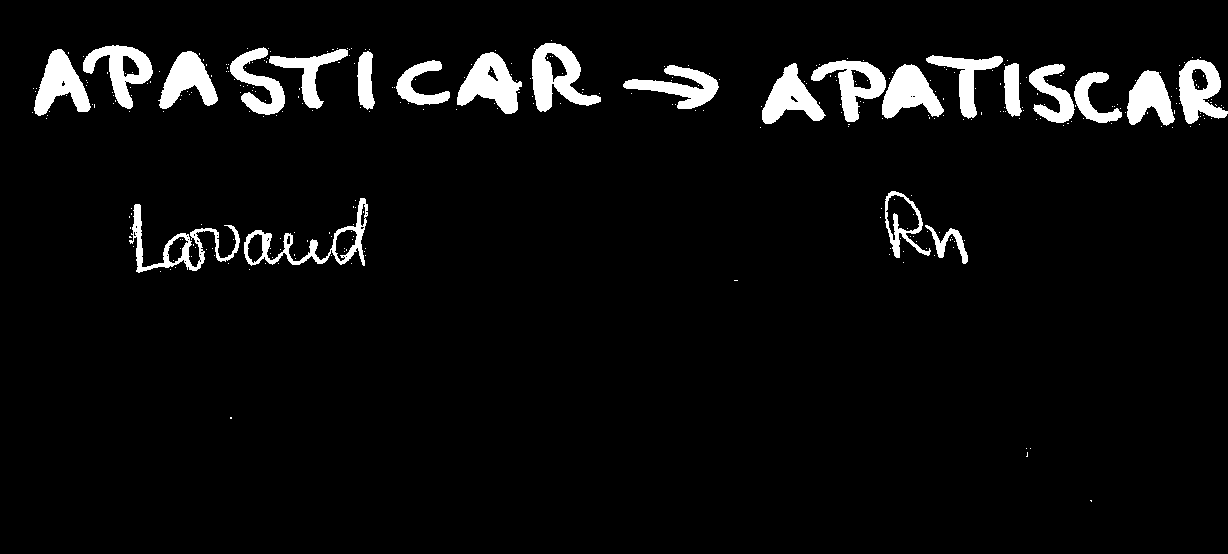 APASTICAR → APATISCAR
Lavaud Rn